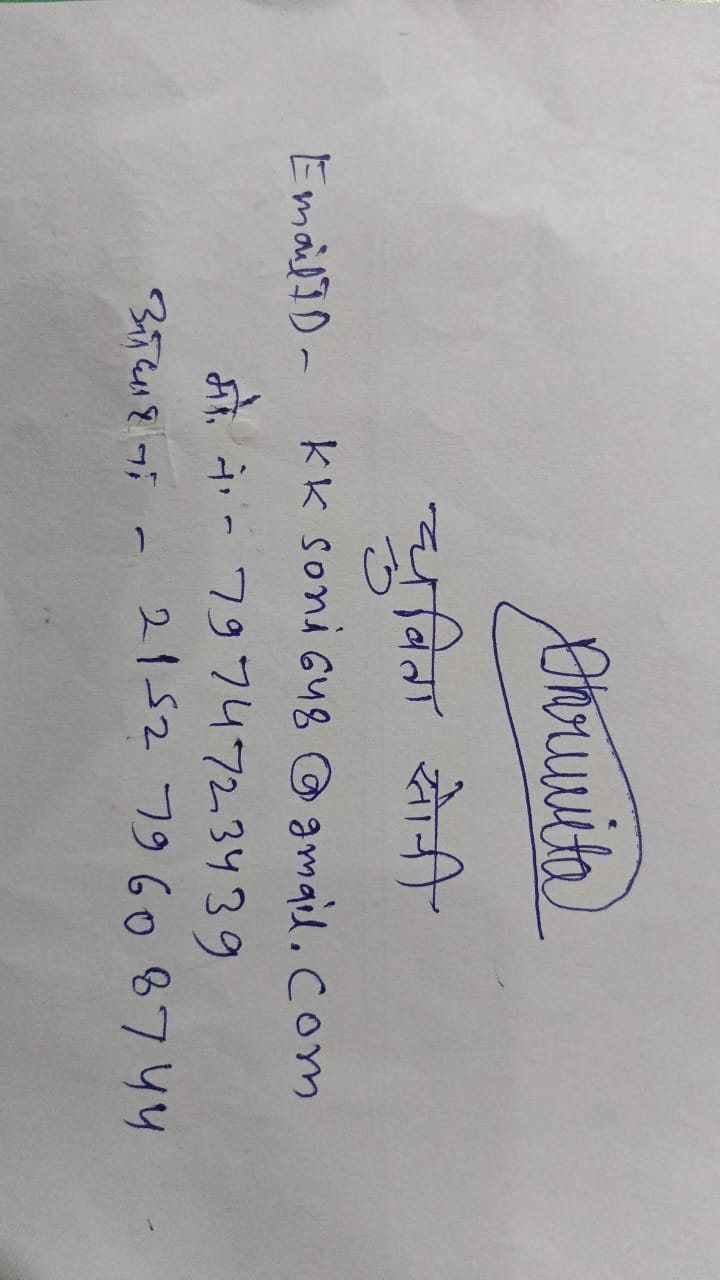 Dhruvita
ध्रुविता सोनी
Email ID - KKsoni648@gmail.Com
मो. नं. - 7974723439
आधार नं - 2152 7960 8744